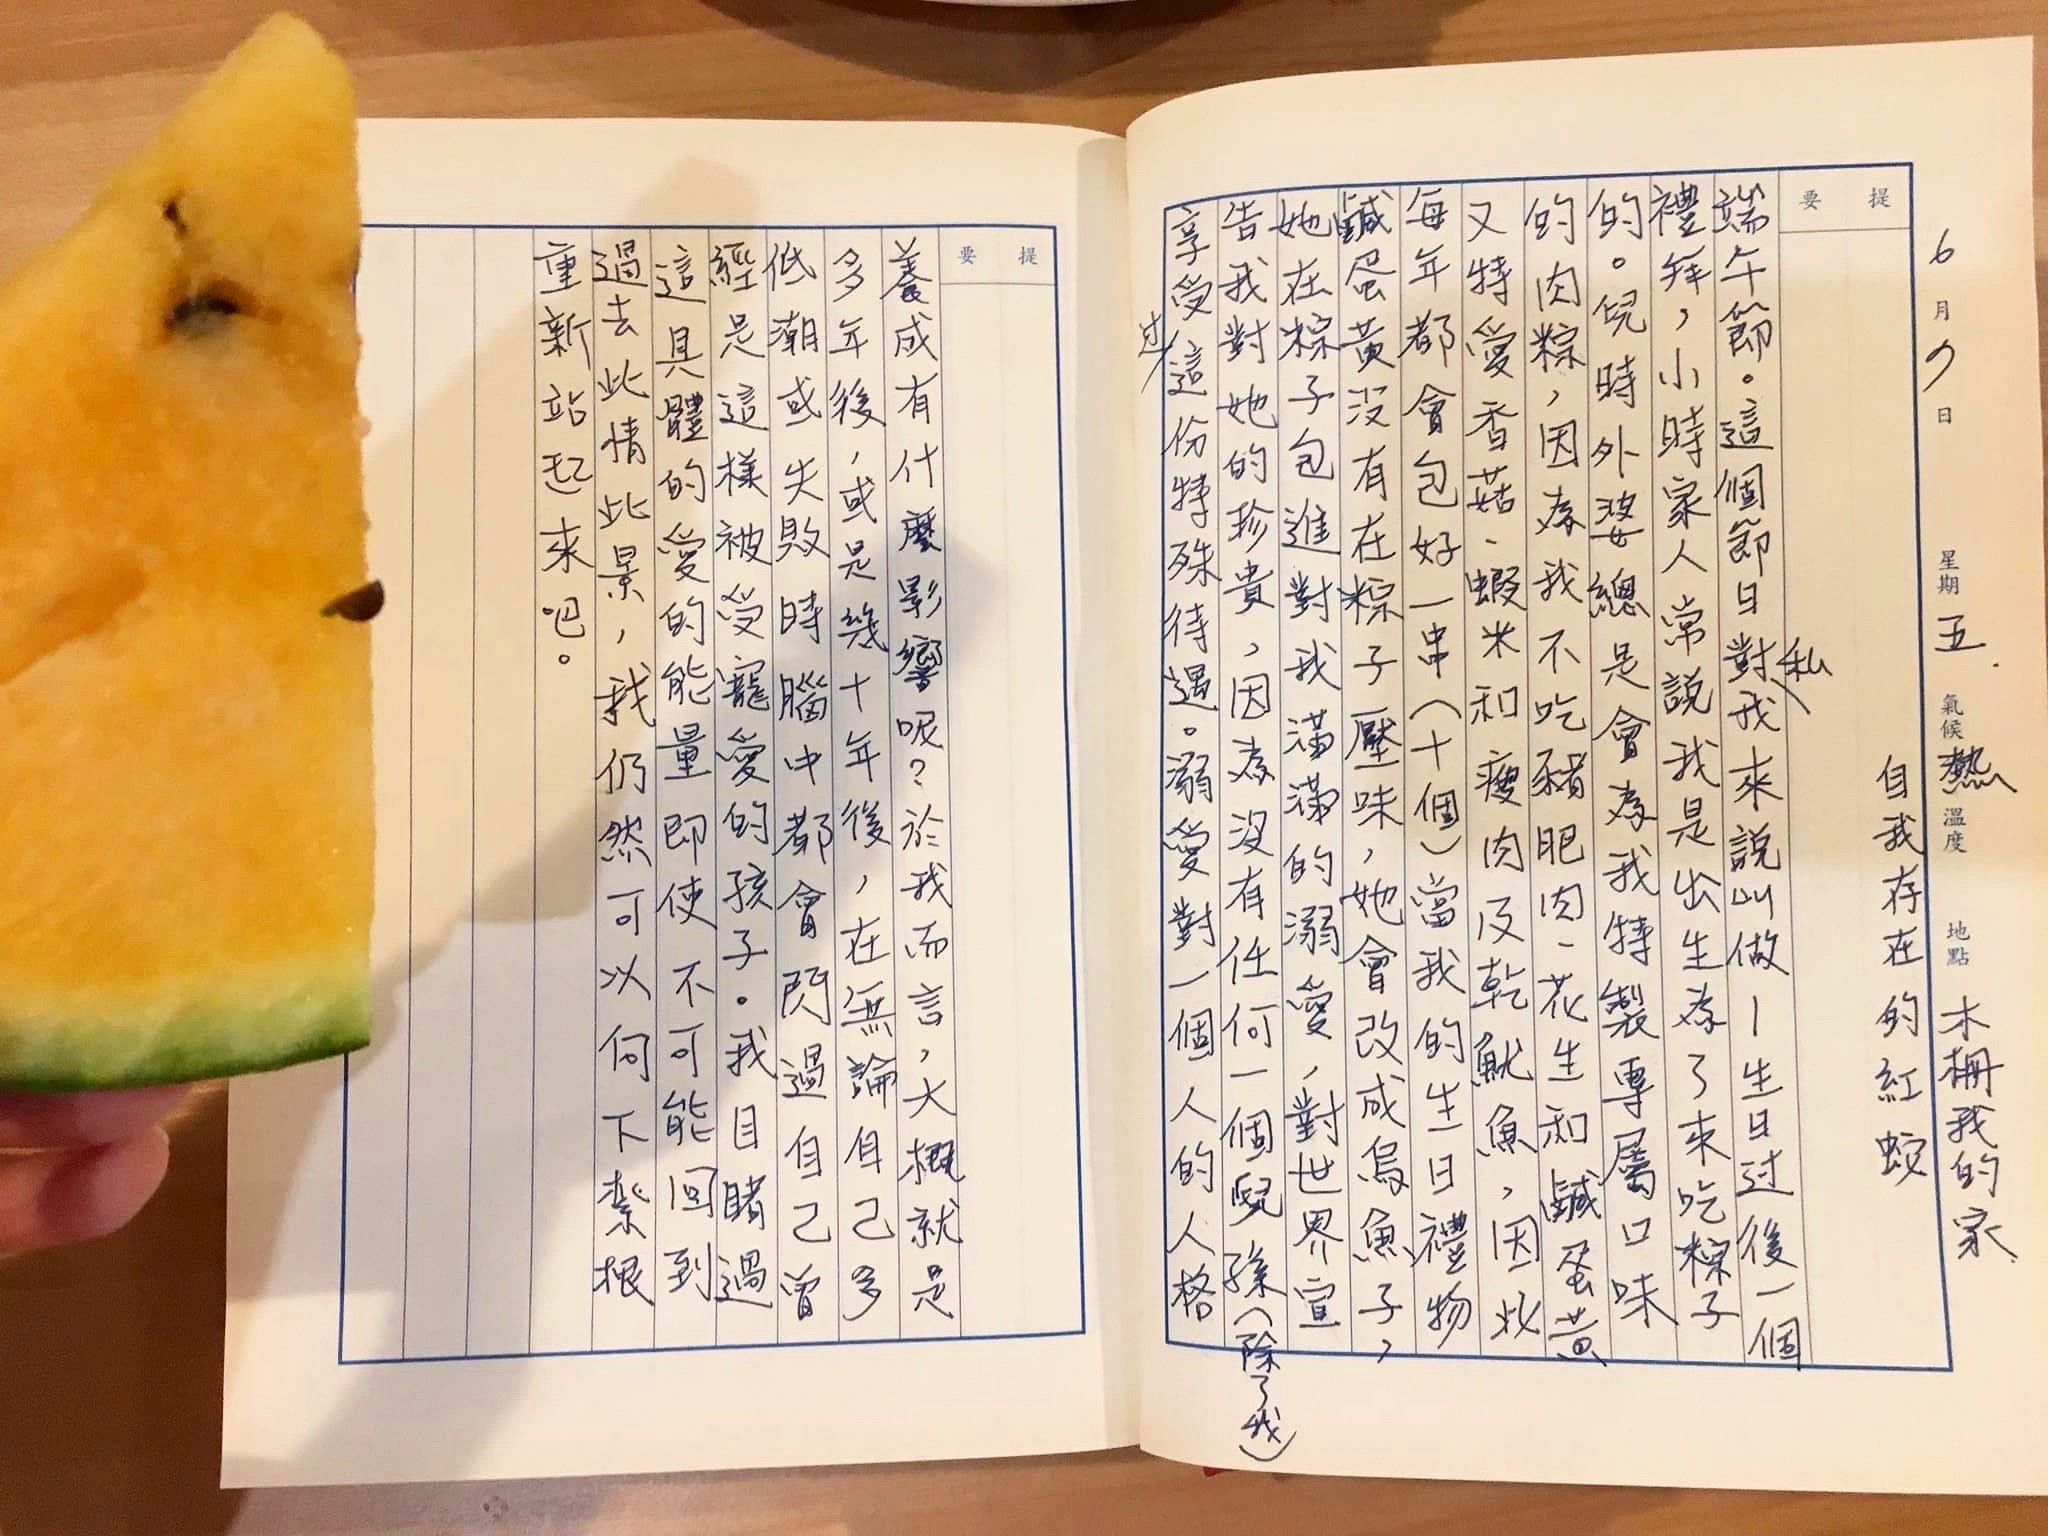 6月7日 星期五 氣候熱 溫度 地點 木柵我的家
自我存在的紅蛟
提要
端午節。這個節日對私我來說叫做｜生日过後一個
禮拜,小時家人常說我是出生為了來吃粽子
的。兒時外婆總是會為我特製專屬口味
的肉粽,因為我不吃豬肥肉、花生和鹹蛋黃
又特愛香菇、蝦米和瘦肉及乾魷魚,因此
每年都會包好一串(十個)當我的生日禮物
鹹蛋黃沒有在粽子壓味,她會改成烏魚子,
她在粽子包進對我滿滿的溺愛,對世界宣
告我對她的珍貴,因為沒有任何一個兒孫(除了我)
享受过這份特殊待遇。溺愛對一個人的人格
提要
養成有什麼影響呢?於我而言,大概就是
多年後,或是幾十年後,在無論自己多
低潮或失敗時腦中都會閃過自己曾
經是這樣被受寵愛的孩子。我目睹過
這具體的愛的能量即使不可能回到
過去此情此景,我們仍然可以向下紮根
重新站起來吧。